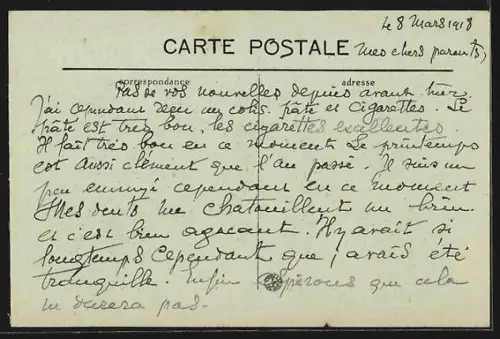 le 8 Mars 1918
CARTE POSTALE
Mes chers parents,
correspondance
adresse
Pas de vos nouvelles depuis avant hier
J'ai cependant reçu un colis. pâte et cigarettes. Le
pâte est très bon, les cigarettes excellentes.
Il fait très bon en ce moment Le printemps
est aussi clément que l'an passé. Je suis un
peu ennuyé cependant en ce moment
Mes dents me chatouillent un brin
et c'est bien agaçant. Il y avait si
longtemps cependant que j'avais été
tranquille. Enfin espérons que cela
ne durera pas.